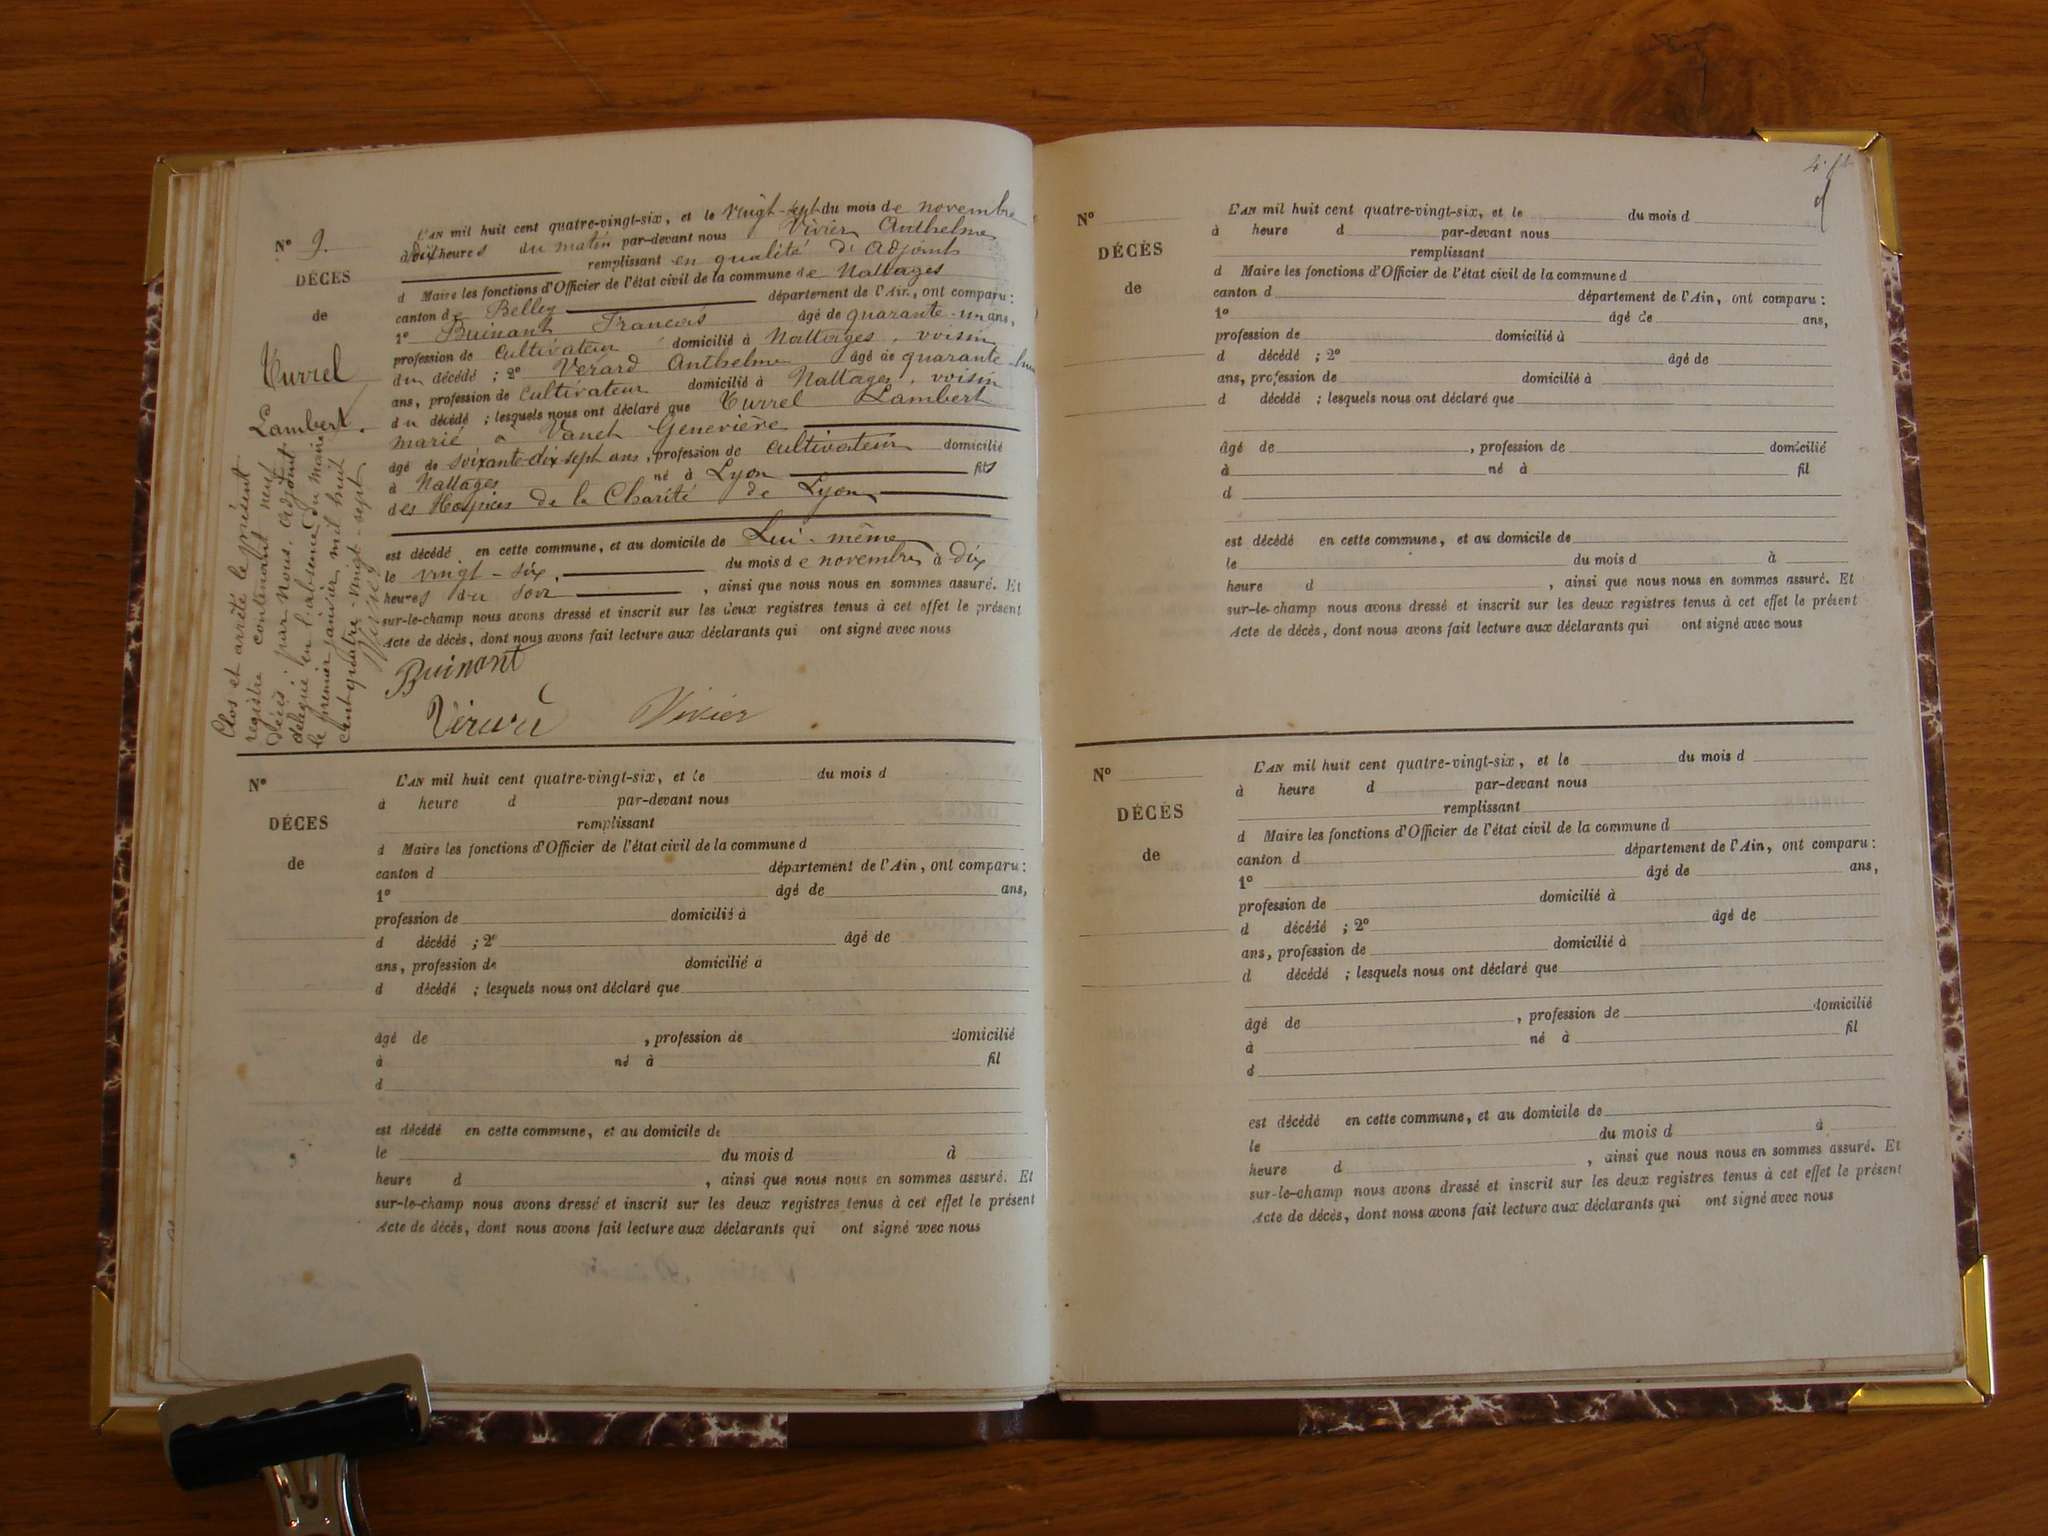 Nº 9.
DÉCÈS
de
Turrel
Lambert.
L'AN mil huit cent quatre-vingt-six, et le vingt-sept du mois de novembre
à dix heures du matin par-devant nous Vivier Anthelme
remplissant en qualité d'adjoint
d Maire les fonctions d'Officier de l'état civil de la commune de Nattages
canton de Belley département de l'Ain, ont comparu :
1º Buinant François âgé de quarante-un ans,
profession de cultivateur domicilié à Nattages, voisin
du décédé ; 2º Vérard Anthelme âgé de quarante-hui
ans, profession de cultivateur domicilié à Nattages, voisin
du décédé ; lesquels nous ont déclaré que Turrel Lambert
marié à Vanet Geneviève
âgé de soixante-dix sept ans, profession de cultivateur domicilié
à Nattages né à Lyon fils
des Hospices de la Charité de Lyon
est décédé en cette commune, et au domicile de Lui-même
le vingt-six, du mois de novembre à dix
heures du soir , ainsi que nous nous en sommes assuré. Et
sur-le-champ nous avons dressé et inscrit sur les deux registres tenus à cet effet le présent
Acte de décès, dont nous avons fait lecture aux déclarants qui ont signé avec nous
Buinant
Vérard Vivier
Clos et arrêté le présent
registre contenant neuf
décès ; par nous, adjoint
délégué en l'absence du maire
le premier janvier mil huit
cent quatre-vingt-sept
Vivier
Nº
DÉCES
de
L'AN mil huit cent quatre-vingt-six, et le du mois d
à heure d par-devant nous
remplissant
d Maire les fonctions d'Officier de l'état civil de la commune d
canton d département de l'Ain, ont comparu :
1º âgé de ans,
profession de domicilié à
d décédé ; 2º âgé de
ans, profession de domicilié à
d décédé ; lesquels nous ont déclaré que
âgé de , profession de domicilié
à né à fil
d
est décédé en cette commune, et au domicile de
le du mois d à
heure d , ainsi que nous nous en sommes assuré. Et
sur-le-champ nous avons dressé et inscrit sur les deux registres tenus à cet effet le présent
Acte de décès, dont nous avons fait lecture aux déclarants qui ont signé avec nous
Nº
DÉCÈS
de
L'AN mil huit cent quatre-vingt-six, et le du mois d
à heure d par-devant nous
remplissant
d Maire les fonctions d'Officier de l'état civil de la commune d
canton d département de l'Ain, ont comparu :
1º âgé de ans,
profession de domicilié à
d décédé ; 2º âgé de
ans, profession de domicilié à
d décédé ; lesquels nous ont déclaré que
âgé de , profession de domicilié
à né à fil
d
est décédé en cette commune, et au domicile de
le du mois d à
heure d , ainsi que nous nous en sommes assuré. Et
sur-le-champ nous avons dressé et inscrit sur les deux registres tenus à cet effet le présent
Acte de décès, dont nous avons fait lecture aux déclarants qui ont signé avec nous
Nº
DÉCÈS
de
L'AN mil huit cent quatre-vingt-six, et le du mois d
à heure d par-devant nous
remplissant
d Maire les fonctions d'Officier de l'état civil de la commune d
canton d département de l'Ain, ont comparu :
1º âgé de ans,
profession de domicilié à
d décédé ; 2º âgé de
ans, profession de domicilié à
d décédé ; lesquels nous ont déclaré que
âgé de , profession de domicilié
à né à fil
d
est décédé en cette commune, et au domicile de
le du mois d à
heure d , ainsi que nous nous en sommes assuré. Et
sur-le-champ nous avons dressé et inscrit sur les deux registres tenus à cet effet le présent
Acte de décès, dont nous avons fait lecture aux déclarants qui ont signé avec nous